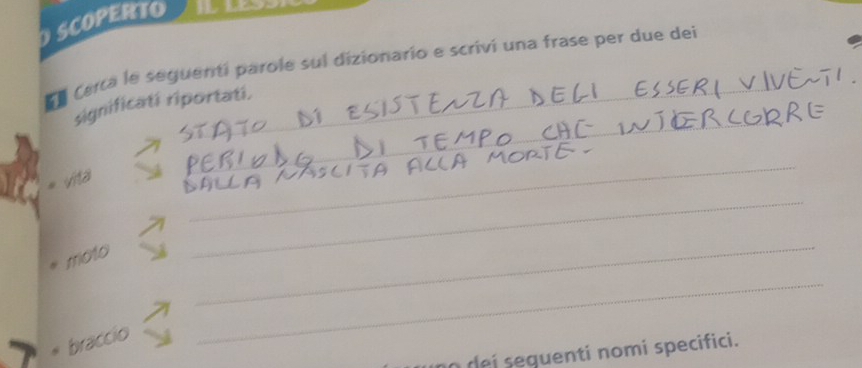 O SCOPERTO IL
1 Cerca le seguenti parole sul dizionario e scrivi una frase per due dei
significati riportati.
STATO DI ESISTENZA DELI ESSERI VIVENTI.
• vita
PERIODO DI TEMPO CHE INTERCORRE
DALLA NASCITA ALLA MORTE.
• moto
• braccio
dei seguenti nomi specifici.